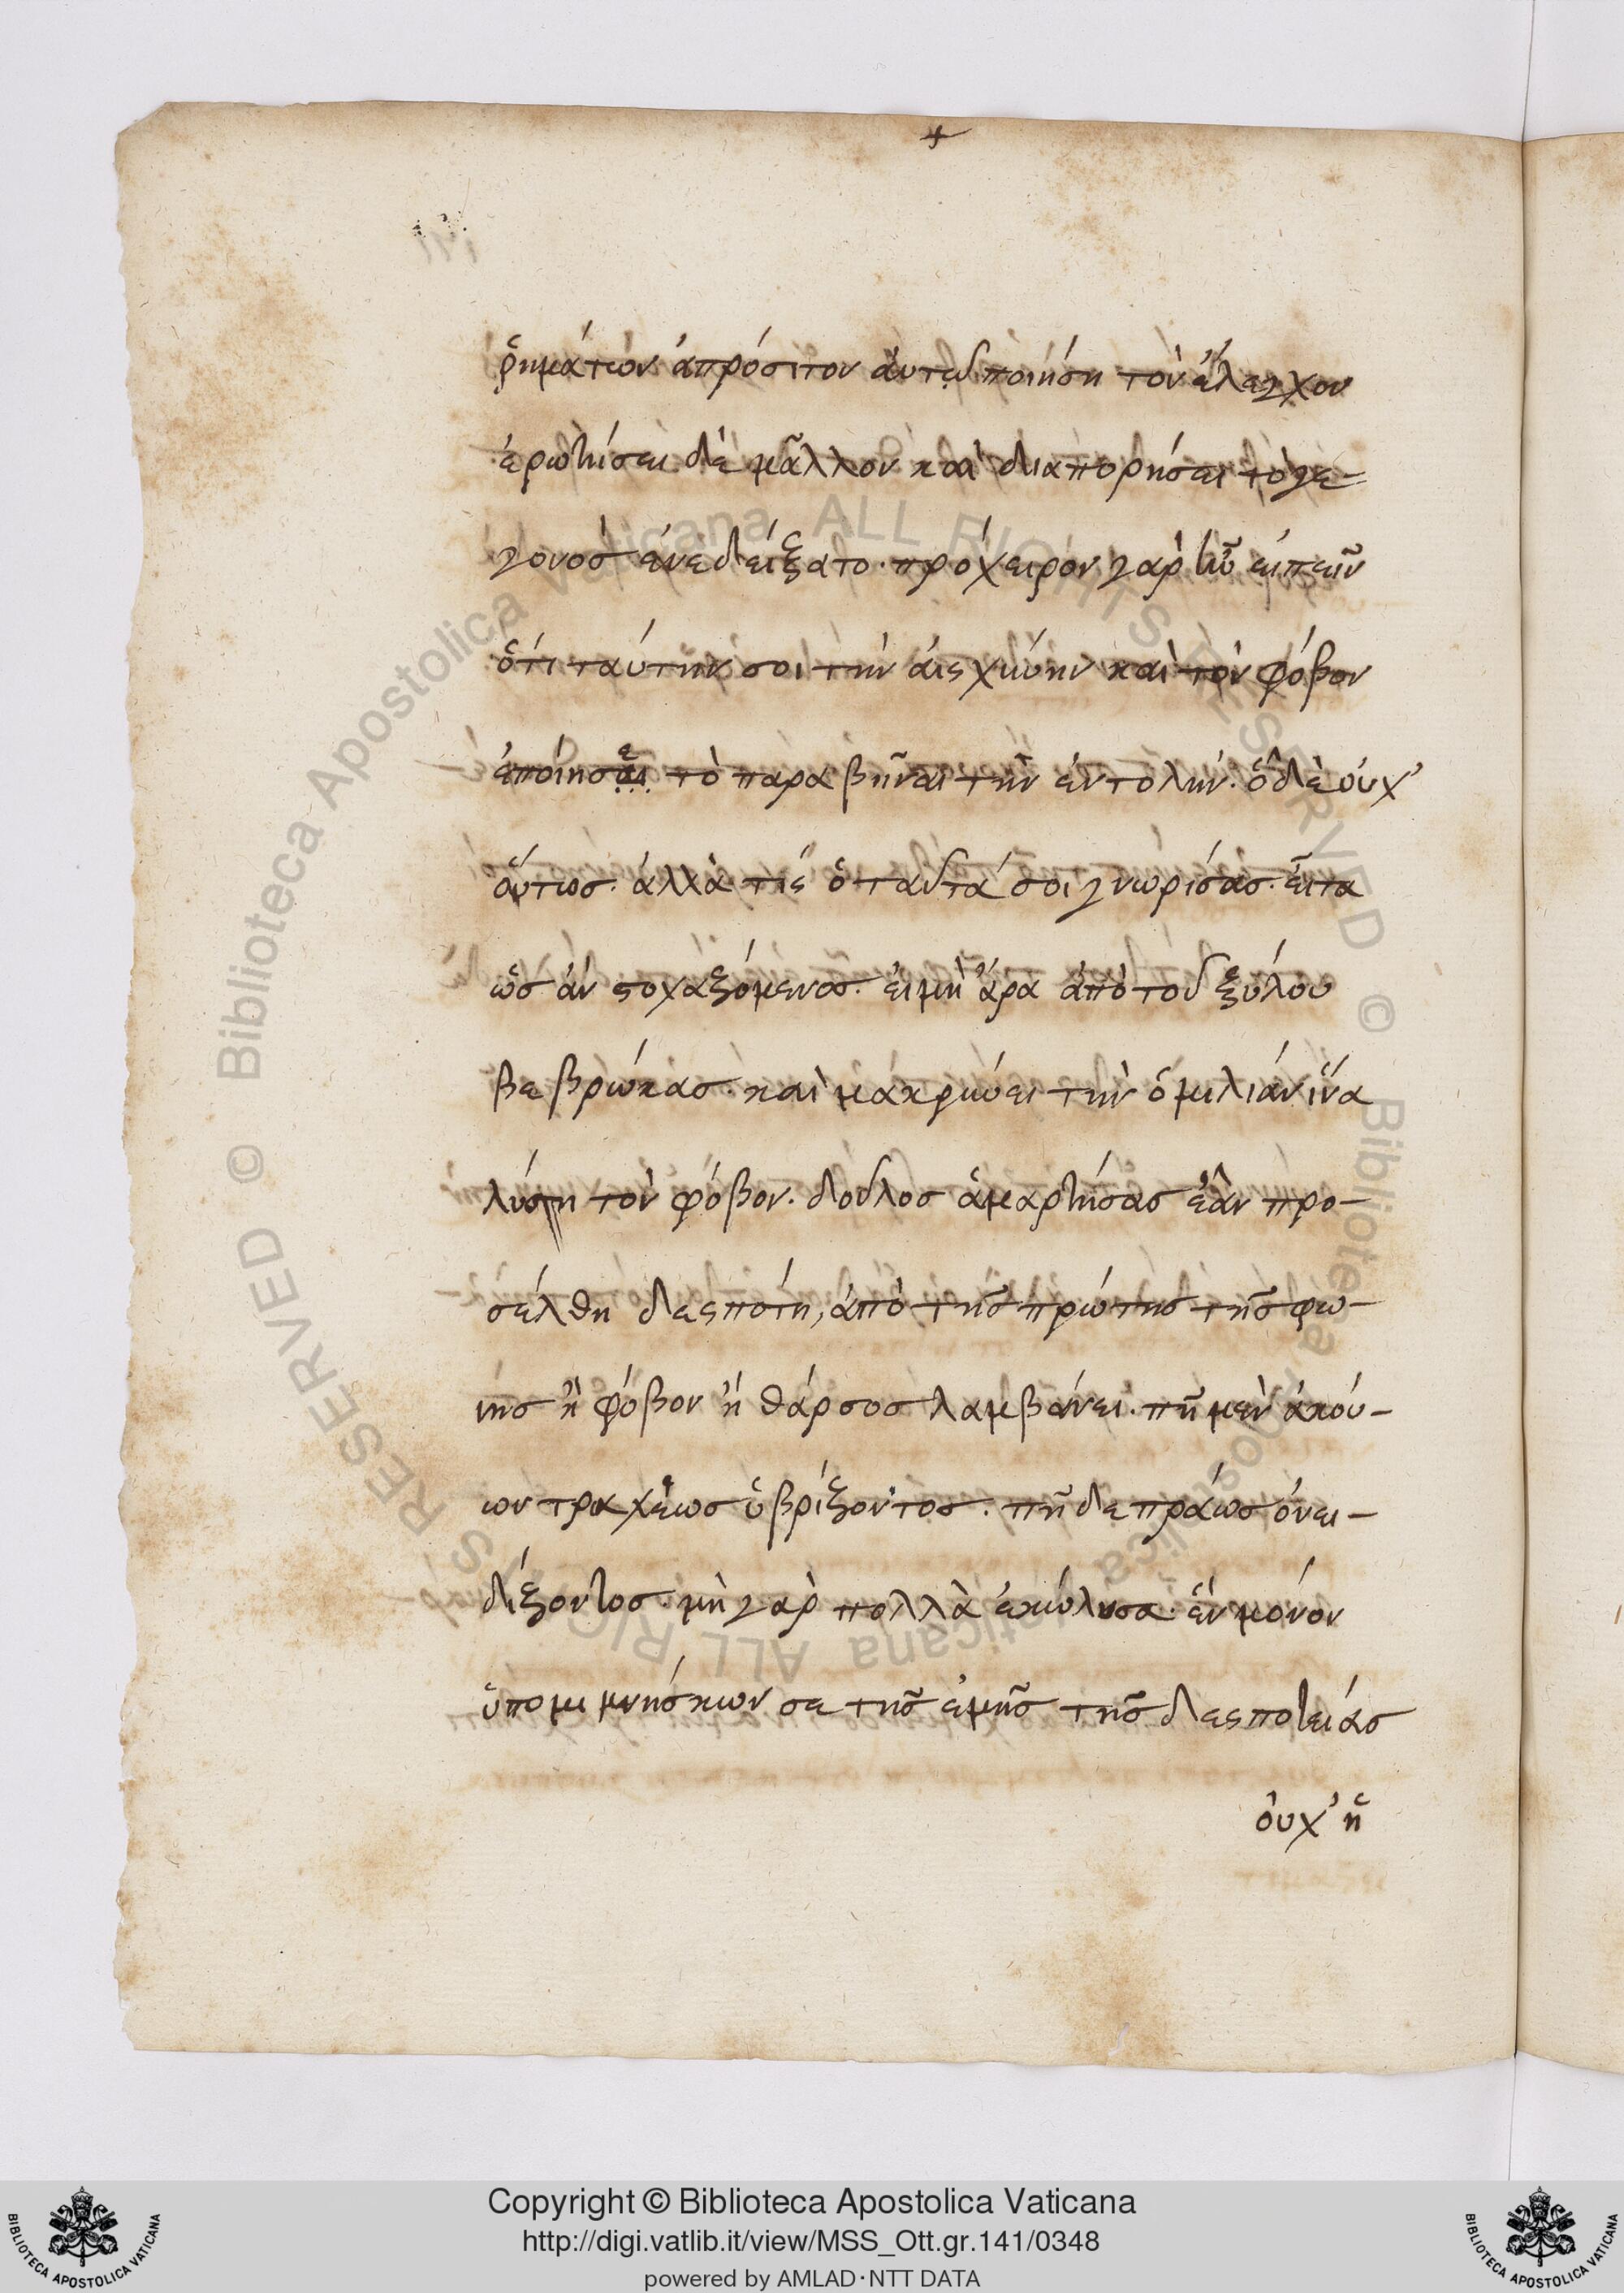 ῥημάτων ἀπρόσιτον ἀυτῷ ποιήση τὸν ἔλεγχον
ἐρωτήσει δὲ μᾶλλον καὶ διαπορήσει τὸ γε-
γονοσ ἐνεδείξατο· πρόχειρον γὰρ ἦν ἐιπεῖν
ὅτι ταύτην σοι τὴν ἀισχύνην καὶ τὸν φόβον
ἐποίησε τὸ παραβῆναι τὴν ἐντολήν· ὁ δὲ ὀυχ'
ὅυτωσ· ἀλλὰ τίς ὁ ταῦτά σοι γνωρίσας· εἶτα
ὡσ ἀν στοχαζόμενοσ· ἐι μὴ ἄρα ἀπὸ τοῦ ξύλου
βεβρώκασ· καὶ μακρύνει τὴν ὁμιλίαν ἵνα
λύση τὸν φόβον· δοῦλοσ ἁμαρτήσας ἐὰν προ-
σέλθη δεσπότη, ἀπὸ τῆσ πρώτησ τῆσ φω-
νησ ἢ φόβον ἢ θάρσοσ λαμβάνει· πῆ μὲν ἀκού-
ων τραχέωσ ὑβρίζοντοσ· πῆ δε πράωσ ὀνει-
δίζοντοσ· μὴ γὰρ πολλὰ ἐκώλυσα· ἕν μόνον
ὑπομιμνήσκων σε τῆσ ἐμῆσ τῆσ δεσποτείασ
ὀυχ' ἥ
Copyright © Biblioteca Apostolica Vaticana
http://digi.vatlib.it/view/MSS_Ott.gr.141/0348
powered by AMLAD·NTT DATA
BIBLIOTECA APOSTOLICA VATICANA
BIBLIOTECA APOSTOLICA VATICANA
© Biblioteca Apostolica Vaticana ALL RIGHTS RESERVED
© Biblioteca Apostolica Vaticana ALL RIGHTS RESERVED